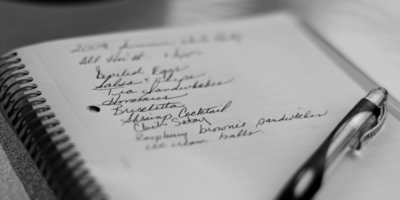 2009 Summer
All
Deviled Eggs
Salsa & Chips
Tea Sandwiches
Hummus
Bruschetta
Shrimp Cocktail
Raspberry brownie sandwiches
ice cream balls